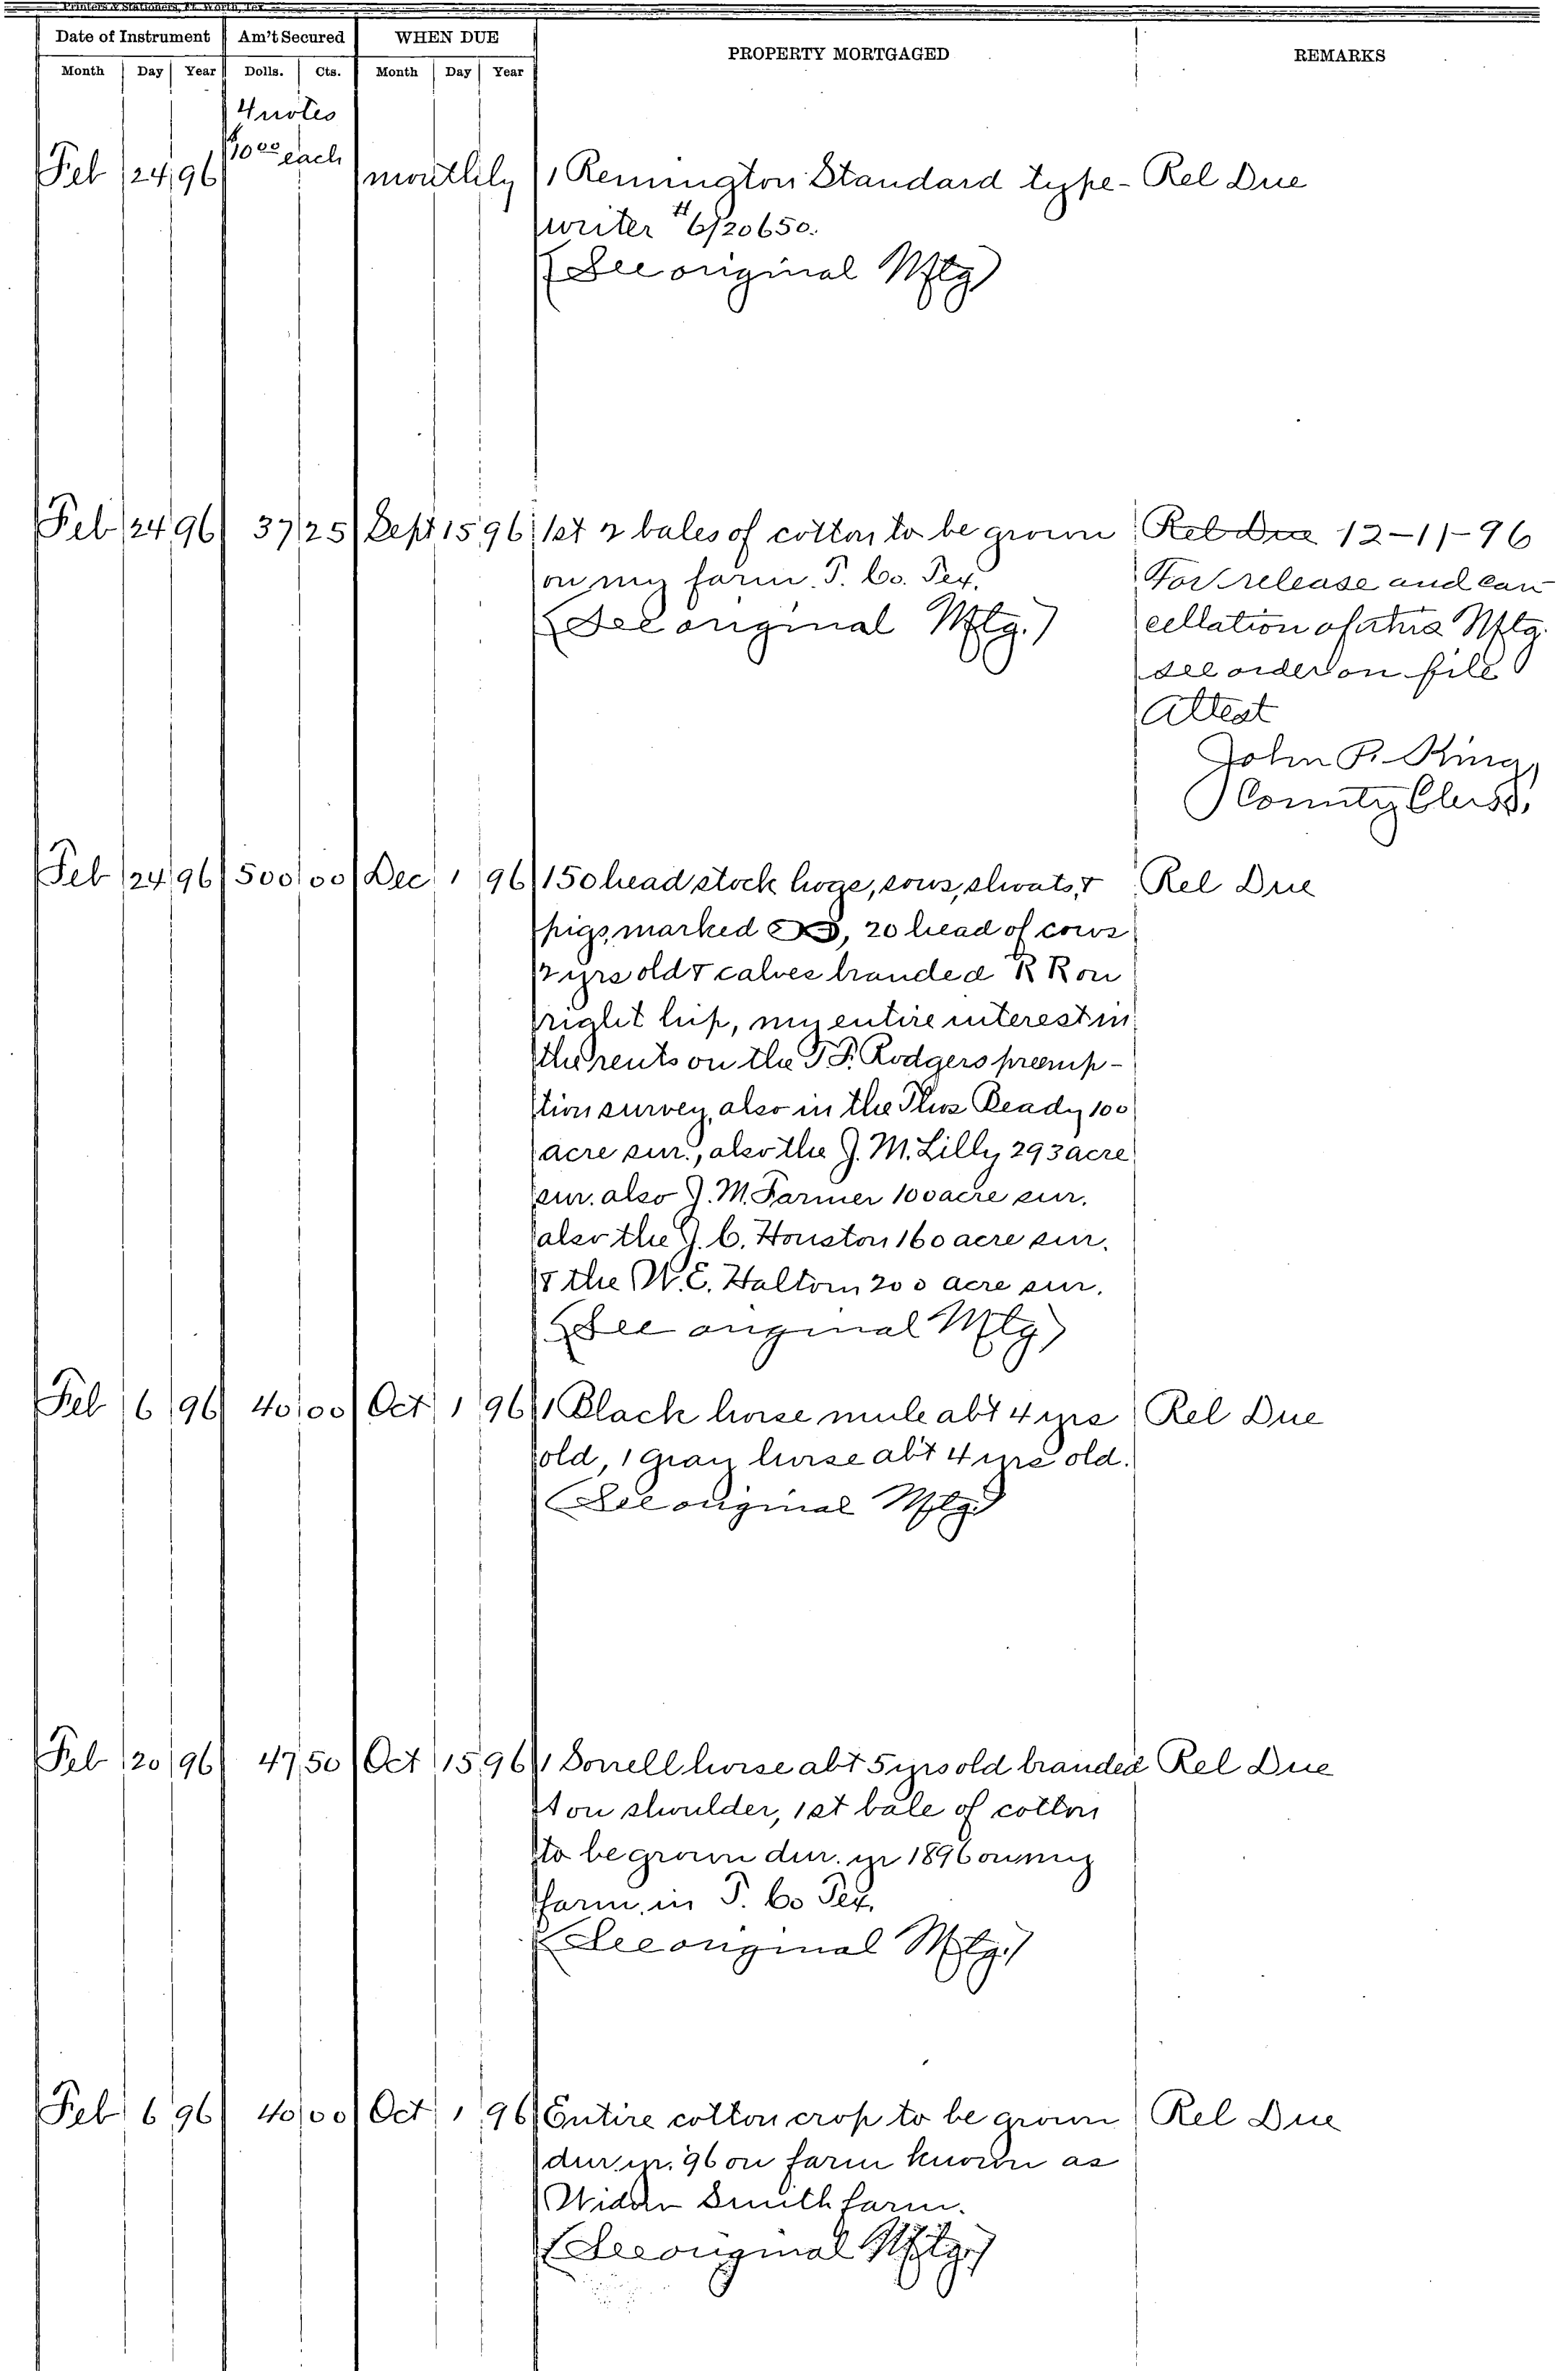 Printers & Stationers, Ft. Worth, Tex.
Date of Instrument Am't Secured WHEN DUE PROPERTY MORTGAGED REMARKS
Month Day Year Dolls. Cts. Month Day Year
4 notes
$10 00 each
Feb 24 96 monthly 1 Remington Standard type- Rel Due
writer #6/20650.
(See original Mtg)
Feb 24 96 37 25 Sept 15 96 1st 2 bales of cotton to be grown Rel Due 12-11-96
on my farm P. Co. Tex. For release and can
(See original Mtg.) cellation of this Mtg.
see order on file
Attest
John P. King,
County Clerk,
Feb 24 96 500 00 Dec 1 96 150 head stock hogs, sows, shoats, & Rel Due
pigs, marked , 20 head of cows
2 yrs old & calves branded R R on
right hip, my entire interest in
the rents on the Rodgers preemp-
tion survey, also in the Thos Ready 100
acre sur., also the J. M. Lilly 293 acre
sur. also J. M. Farmer 100 acre sur.
also the J. C. Houston 160 acre sur.
& the W. E. Haltom 200 acre sur.
(See original Mtg)
Feb 6 96 40 00 Oct 1 96 1 Black horse mule abt 4 yrs Rel Due
old, 1 Gray horse abt 4 yrs old.
(See original Mtg.)
Feb 20 96 47 50 Oct 15 96 1 Sorrell horse abt 5 yrs old branded Rel Due
on shoulder, 1st bale of cotton
to be grown dur. yr 1896 on my
farm, in P. Co Tex.
(See original Mtg.)
Feb 6 96 40 00 Oct 1 96 Entire cotton crop to be grown Rel Due
dur. yr. 96 on farm known as
Widow Smith farm.
(See original Mtg.)